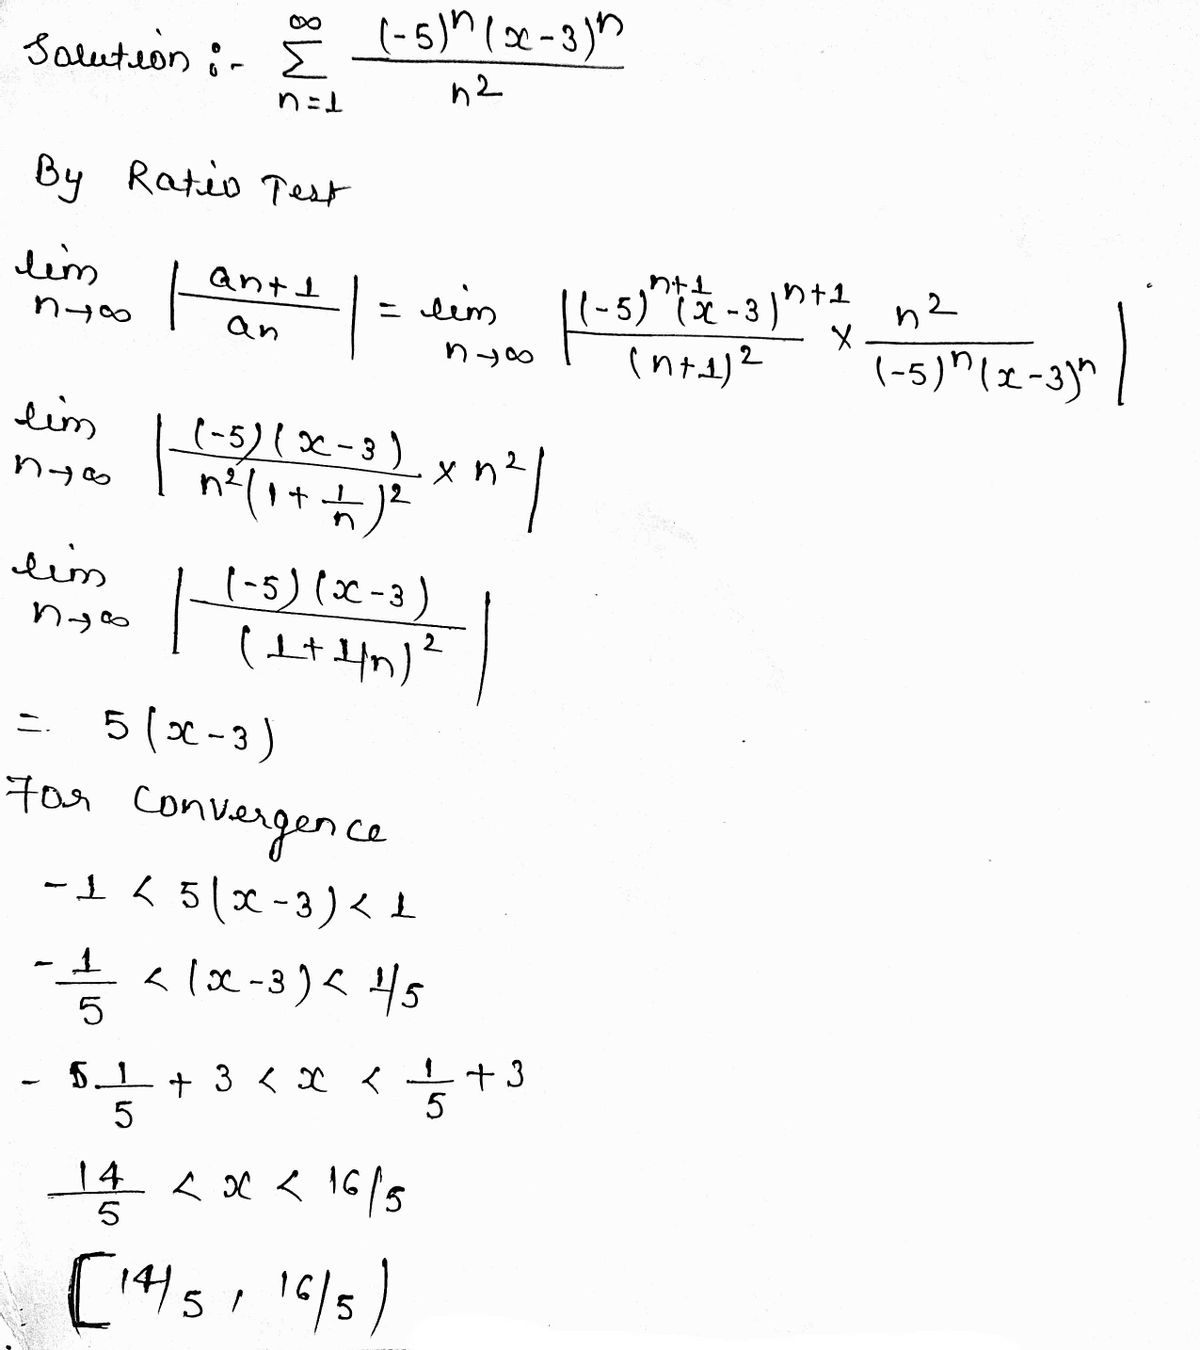 Solution :- ∑_{n=1}^{∞} \frac{(-5)^n (x-3)^n}{n^2}
By Ratio Test
lim_{n→∞} |\frac{a_{n+1}}{a_n}| = lim_{n→∞} |\frac{(-5)^{n+1} (x-3)^{n+1}}{(n+1)^2} × \frac{n^2}{(-5)^n (x-3)^n}|
lim_{n→∞} |\frac{(-5)(x-3)}{n^2(1+\frac{1}{n})^2} × n^2|
lim_{n→∞} |\frac{(-5)(x-3)}{(1+1/n)^2}|
= 5(x-3)
For convergence
-1 < 5(x-3) < 1
-\frac{1}{5} < (x-3) < 1/5
-\frac{1}{5} + 3 < x < \frac{1}{5} + 3
\frac{14}{5} < x < 16/5
[14/5, 16/5)